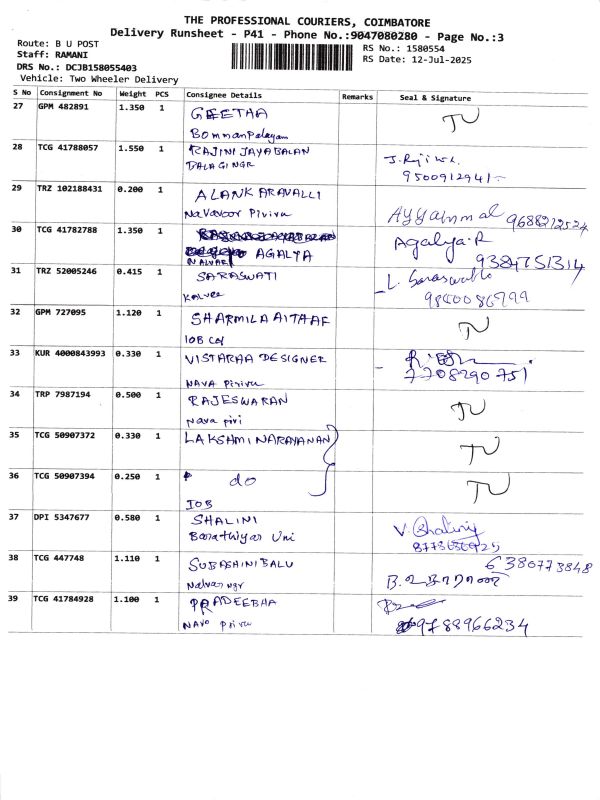 THE PROFESSIONAL COURIERS, COIMBATORE
Delivery Runsheet - P41 - Phone No.:9047080280 - Page No.:3
Route: B U POST
RS No.: 1580554
Staff: RAMANI
RS Date: 12-Jul-2025
DRS No.: DCJB158055403
Vehicle: Two Wheeler Delivery
S No Consignment No Weight PCS Consignee Details Remarks Seal & Signature
27 GPM 482891 1.350 1 GEETHA TU
Bommanpalayam
28 TCG 41788057 1.550 1 RAJINI JAYABALAN
BALAGINGR 9500912941
29 TRZ 102188431 0.200 1 ALANKARAVALLI
Navavoor Piviru Ayyammal 9688212524
30 TCG 41782788 1.350 1 Agalya.R
AGALYA 9384751314
NALVAR
31 TRZ 52005246 0.415 1 SARASWATI L.
Kalvee
32 GPM 727095 1.120 1 SHARMILA AITAAF TU
IOB Col
33 KUR 4000843993 0.330 1 VISTARAA DESIGNER
NAVA Piriru 7708290751
34 TRP 7987194 0.500 1 RAJESWARAN TU
Nava piri
35 TCG 50907372 0.330 1 LAKSHMI NARAYANAN TU
36 TCG 50907394 0.250 1 do TU
IOB
37 DPI 5347677 0.580 1 SHALINI V. Shaliniy
Barathiyar Uni
38 TCG 447748 1.110 1 SUBASHINI BALU 6380773848
Nalvar ngr
39 TCG 41784928 1.100 1 PRADEEBHA
NAVO Piriru 9788966234